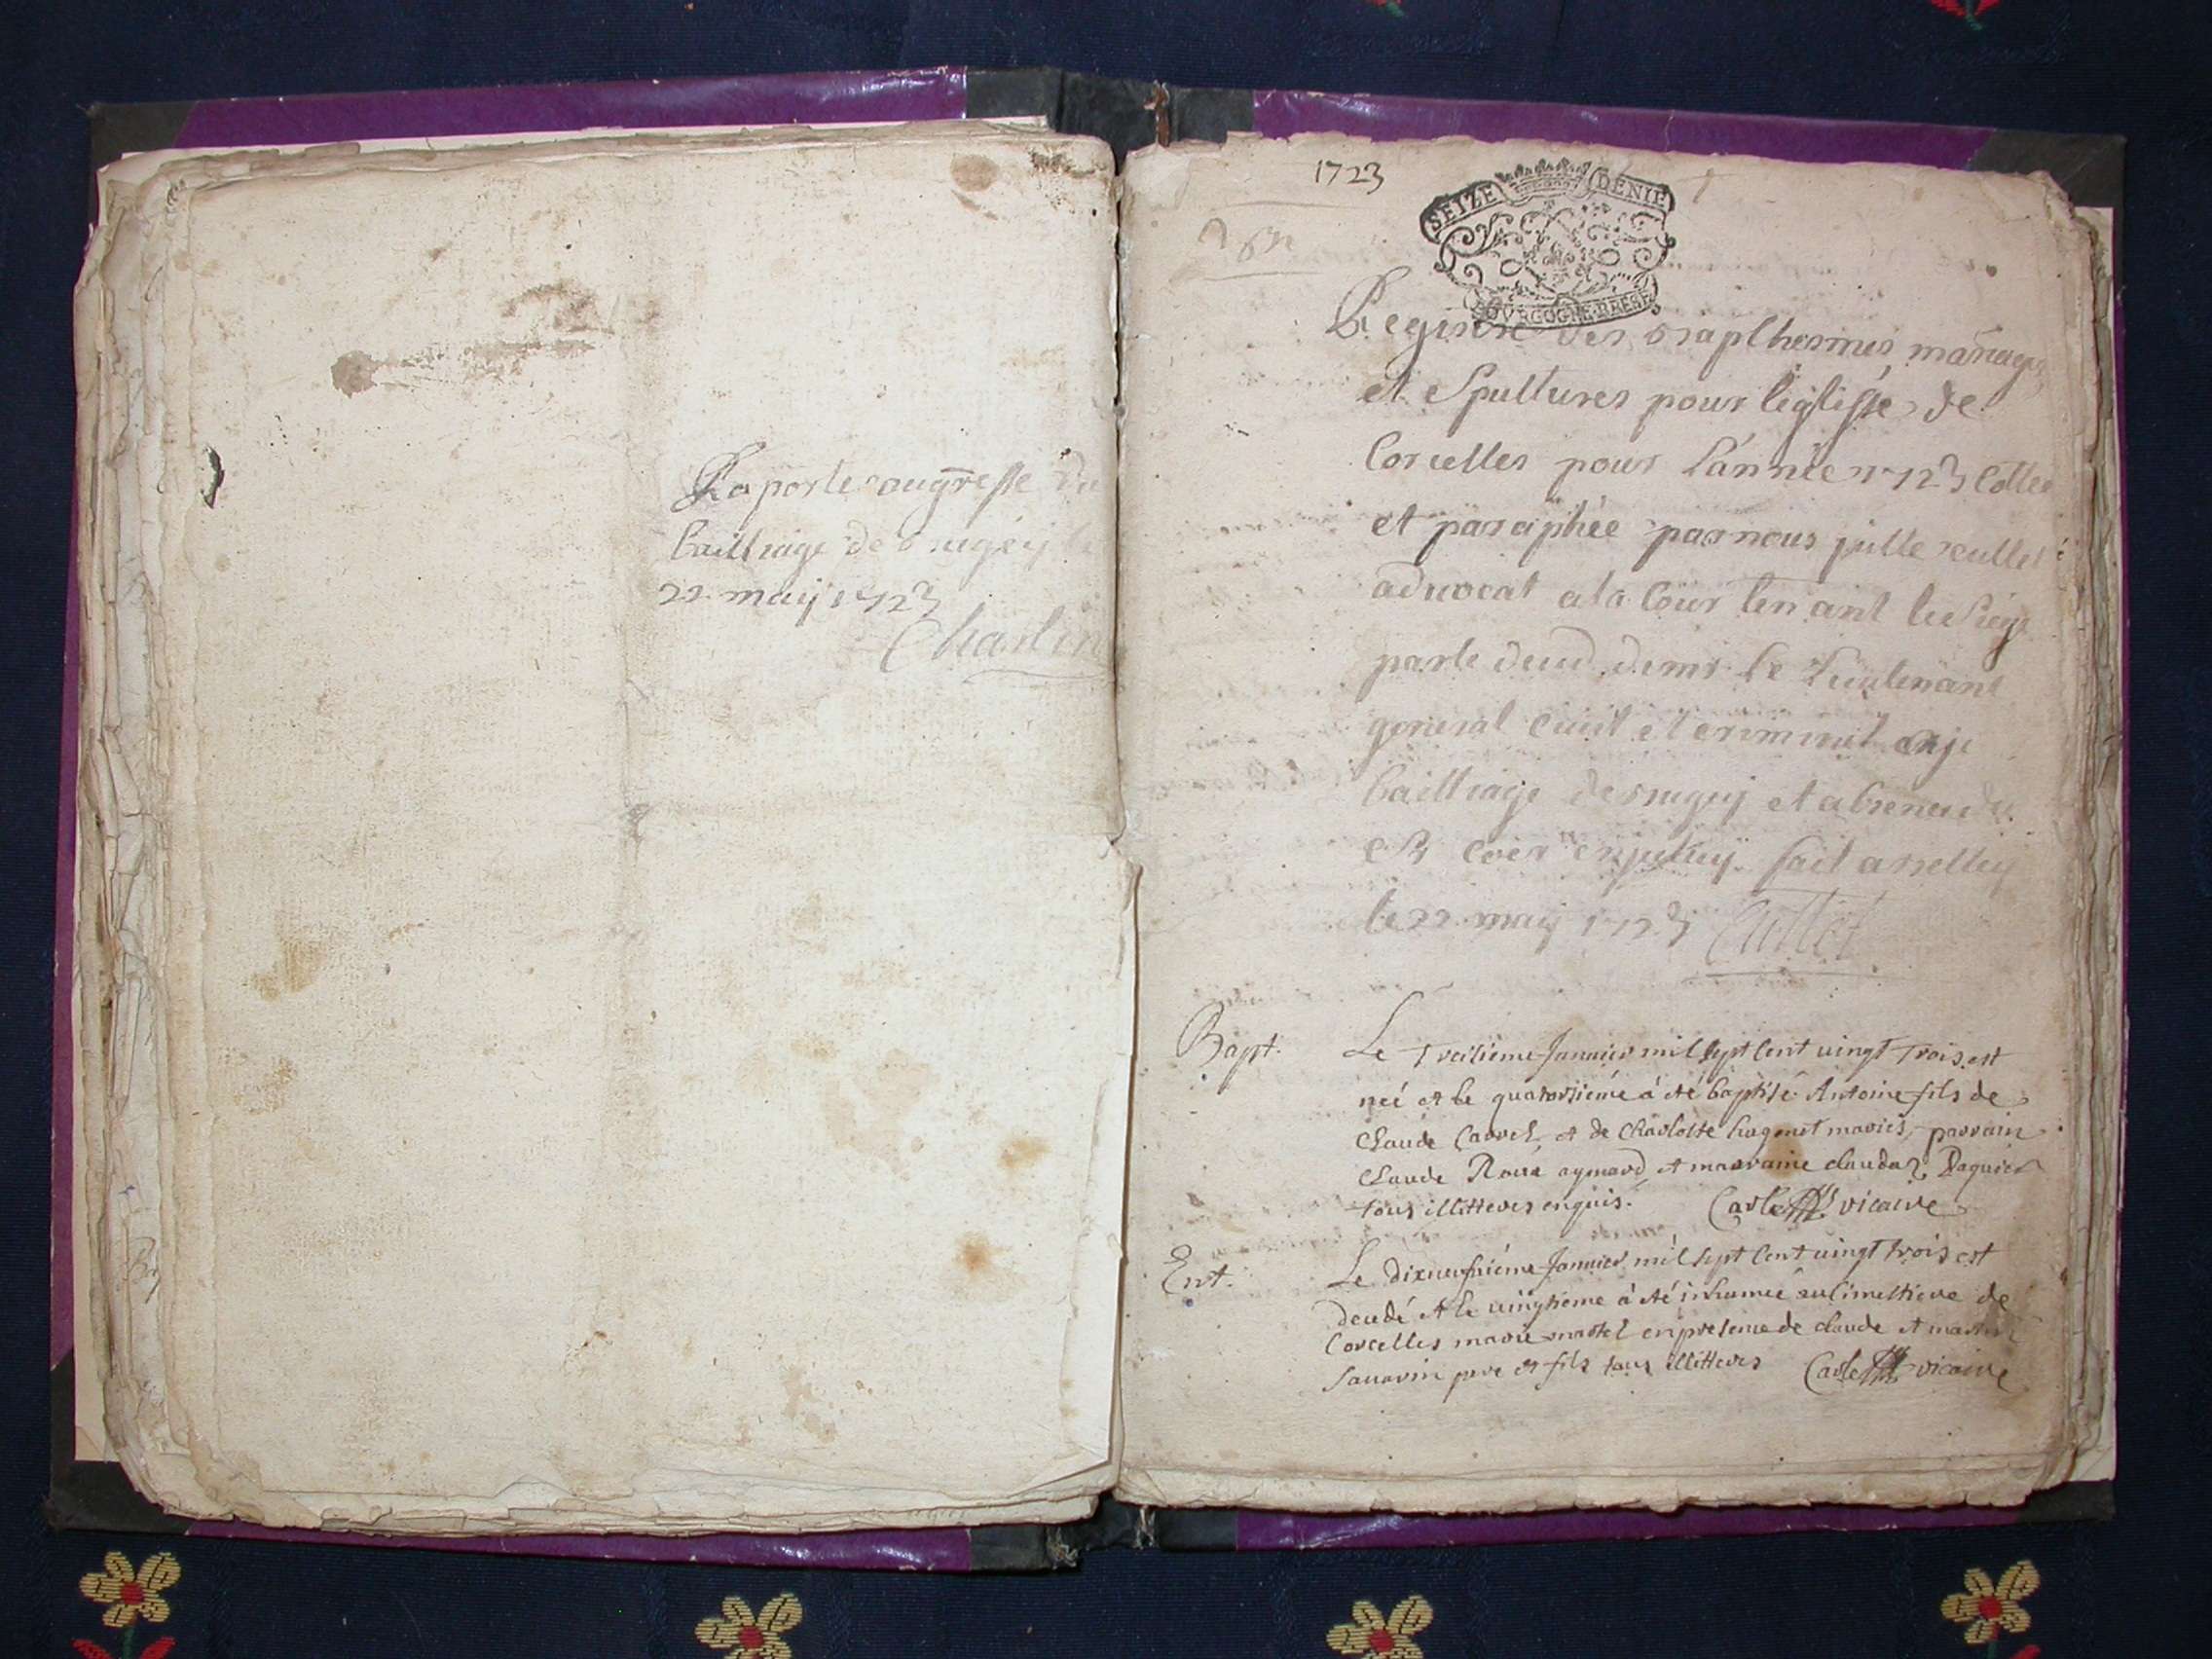 Raporté au greffe du
bailliage de bugey le
22 may 1723
Charlin
1723
SEIZE DENIE
BOVRGOGNE BRESE
Registre des bapthesmes mariages
et Spultures pour léglisse de
Corcelles pour Lánnée 1723 Cottee
et paraphée par nous julle cullet
advocat a la Cour tenant le Siege
par le deud de mr le Lieutenant
general Civil et criminel au
bailliage de bugey et
fait a belley
le 22 may 1723 Cullet
Bapt. Le Treisieme Janvier mil sept Cent vingt Trois est
neé et le quatorsiéme à été baptisé Antoine fils de
Claude Carrel et de Charlotte hugonet mariés, parrain
Claude Roux aymard et marraine claudaz Paquier
tous illitteres enquis. Carle vicaire
Ent. Le dixneufviéme Janvier mil sept Cent vingt trois est
decedé et le vingtieme à été inhumeé au Cimettiere de
Corcelles marie martel en presence de claude et martin
Savarin pere et fils tous illitteres Carle vicaire